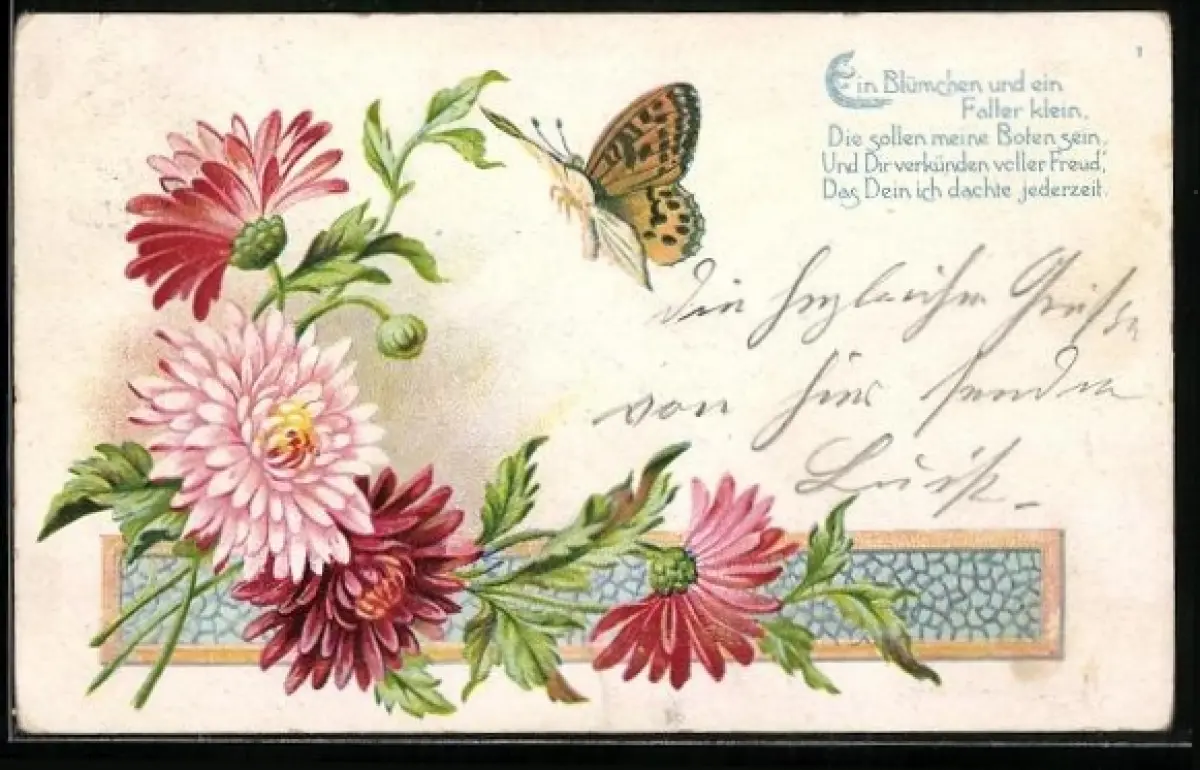 1
Ein Blümchen und ein
Falter klein,
Die sollen meine Boten sein,
Und Dir verkünden voller Freud',
Das Dein ich dachte jederzeit.
Die herzlichsten Grüße
von hier senden